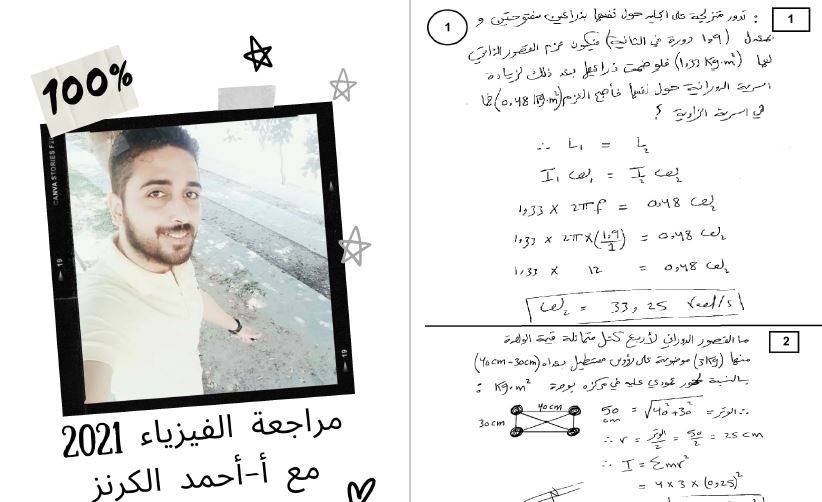 100%
CANVA STORIES F2
19
19
مراجعة الفيزياء 2021
مع أ-أحمد الكرنز
1
1
: تدور متزلجة على الجليد حول نفسها بذراعين مفتوحتين و
بمعدل (1,9 دورة في الثانية) فيكون عزم القصور الذاتي
لها (1,33 Kg.m²) فلو ضمت ذراعيها بعد ذلك لزيادة
السرعة الدورانية حول نفسها فأصبح العزم (0,48 Kg.m²) فما
هي السرعة الزاوية ؟
∴ L₁ = L₂
I₁ ω₁ = I₂ ω₂
1,33 × 2πf = 0,48 ω₂
1,33 × 2π × (1,9/1) = 0,48 ω₂
1,33 × 12 = 0,48 ω₂
ω₂ = 33,25 rad/s
2
ما القصور الدوراني لأربع كتل متماثلة قيمة الواحدة
منها (3Kg) موضوعة على رؤوس مستطيل بعداه (40cm-30cm)
بالنسبة لمحور عمودي عليه في مركزه بوحدة Kg.m² :
40cm
30cm
∴ الوتر = √40²+30² = 50 cm
∴ r = الوتر/2 = 50/2 = 25 cm
∴ I = Σmr²
= 4 × 3 × (0,25)²